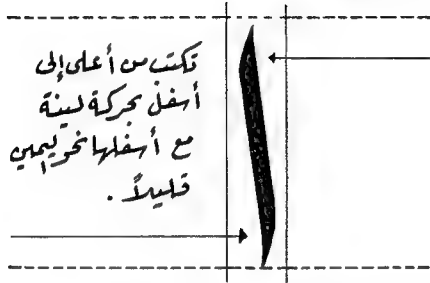 تكتب من أعلى إلى
أسفل بحركة لينة
مع أسفلها نحو اليمين
قليلاً .